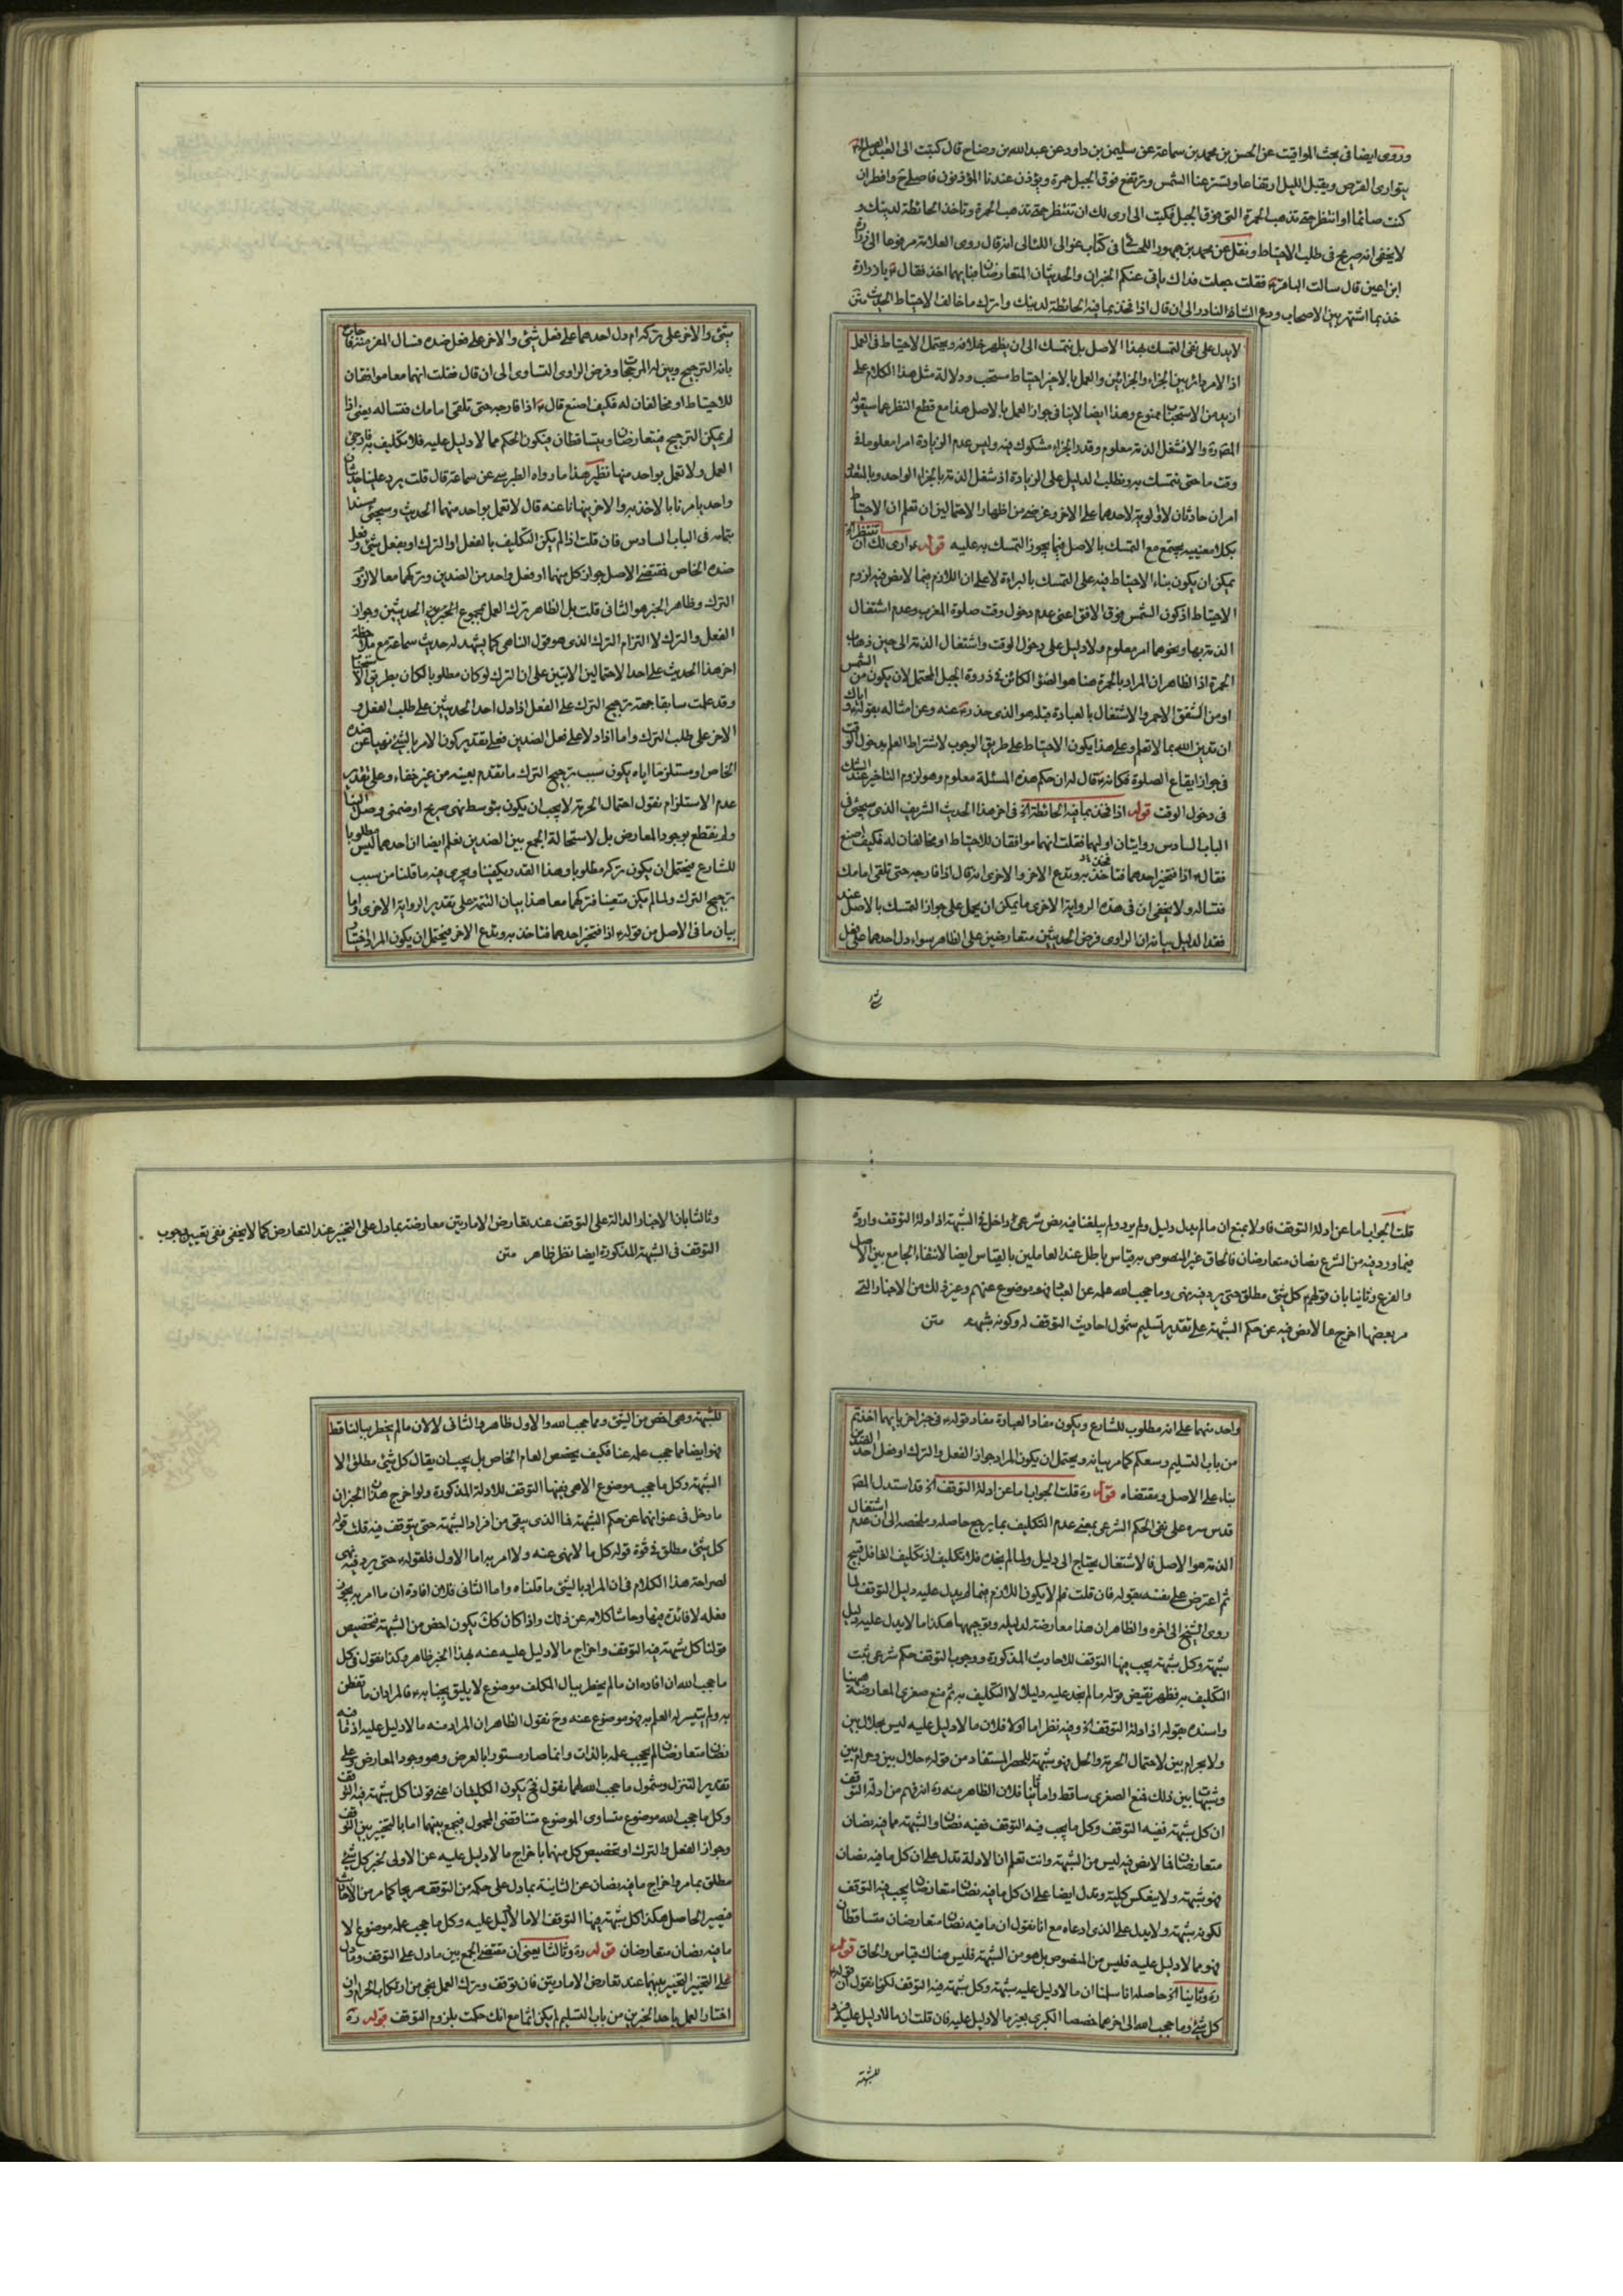 وروى ايضا فى بحث المواقيت عن الحسن بن محمد بن سماعة عن سليمن بن داود عن عبد الله بن وضاح قال كتبت الى العبد الصالح ع
يتوارى القرص ويقبل الليل ارتفاعا ويستر عنا الشمس وترتفع فوق الجبل حمرة ويؤذن عندنا المؤذنون فاصلى ح وافطر ان
كنت صائما او انتظر حتى تذهب الحمرة التى فوق الجبل فكتب الى ارى لك ان تنتظر حتى تذهب الحمرة وتاخذ الحائطة لدينك و
لا يخفى انه صريح فى طلب الاحتياط ونقل عن محمد بن جمهور اللحسائى فى كتاب غوالى اللئالى انه قال روى العلامة مرفوعا الى زرارة
ابن اعين قال سالت الباقر ع فقلت جعلت فداك ياتى عنكم الخبران والحديثان المتعارضان فبايهما اخذ فقال ع يا زرارة
خذ بما اشتهر بين الاصحاب ودع الشاذ النادر الى ان قال اذا فخذ بما فيه الحائطة لدينك واترك ما خالف الاحتياط الحديث متن
لا يدل على نفى التمسك بهذا الاصل بل نتمسك الى ان يظهر خلافه ويحتمل الاحتياط فى العمل
اذا الامر دائر بين الجزاء والجزائين والعمل بالاخير احتياط مستحب ودلالة مثل هذا الكلام على
ازيد من الاستحباب ممنوع وهذا ايضا لا ينافى جواز العمل بالاصل هذا مع قطع النظر عما سيقوله
المص ره والا فشغل الذمة معلوم وقدر الجزاء مشكوك فيه وليس عدم الزيادة امرا معلوما فى
وقت ما حتى نتمسك به ونطلب الدليل على الزيادة اذ شغل الذمة بالجزاء الواحد وبالمتعدد
امران حادثان لا اولوية لاحدهما على الاخر وغرضى من اظهار الاحتمالين ان تعلم ان الاحتياط
بكلا معنييه يجتمع مع التمسك بالاصل فيما يجوز التمسك به عليه قوله ع ارى لك ان تنتظر اه
يمكن ان يكون بناء الاحتياط فيه على التمسك بالبراءة لا على ان اللازم فيما لا نص فيه لزوم
الاحتياط اذ كون الشمس فوق الافق اعنى عدم دخول وقت صلوة المغرب وعدم اشتغال
الذمة بها ونحوهما امر معلوم ولا دليل على دخول الوقت واشتغال الذمة الى حين ذهاب
الحمرة اذ الظاهر ان المراد بالحمرة هنا هو الضوء الكائن فى ذروة الجبل المحتمل لان يكون من الشمس
او من الشفق الاحمر والاشتغال بالعبادة قبله هو الذى حذر ع عنه وعن امثاله بقوله اياك و
ان تدين الله بما لا تعلم وعلى هذا يكون الاحتياط على طريق الوجوب لاشتراط العلم بدخول الوقت
فى جواز ايقاع الصلوة فكانه ع قال له ان حكم هذه المسئلة معلوم وهو لزوم التاخير عند الشك
فى دخول الوقت قوله اذا فخذ بما فيه الحائطة اه فى اخر هذا الحديث الشريف الذى سيجئ فى
الباب السادس روايتان اوليهما فقلت انهما موافقان للاحتياط او مخالفان له فكيف اصنع
فقال ع اذا فتخير احدهما فتاخذ به وتدع الاخر والاخرى انه قال اذا فارجه حتى تلقى امامك
فتساله ولا يخفى ان فى هذه الرواية الاخرى ما يمكن ان يحمل على جواز التمسك بالاصل عند
فقد الدليل بيانه ان الراوى فرض الحديثين متعارضين على الظاهر سواء دل احدهما على فعل
شئ
شئ والاخر على تركه ام دل احدهما على فعل شئ والاخر على فعل ضده فسال
بانه الترجيح وبين له المرجحات وفرض الراوى التساوى الى ان قال فقلت انهما معا موافقان
للاحتياط او مخالفان له فكيف اصنع قال ع اذا فارجه حتى تلقى امامك فتساله يعنى اذا
لم يمكن الترجيح فتتعارضان ويتساقطان فيكون الحكم مما لا دليل عليه فلا تكليف به فارجئ
العمل ولا تعمل بواحد منهما نظير هذا ما رواه الطبرسى عن سماعة قال قلت يرد علينا حديثان
واحد يامرنا بالاخذ به والاخر ينهانا عنه قال لا تعمل بواحد منهما الحديث وسيجئ سندا
بتمامه فى الباب السادس فان قلت اذا لم يكن التكليف بالفعل او الترك او بفعل شئ وفعل
ضده الخاص فمقتضى الاصل جواز كل منهما او فعل واحد من الضدين وتركهما معا لا لزوم
الترك وظاهر الخبر هو الثانى قلت بل الظاهر ترك العمل بمجموع الخبرين الحديثين وجواز
الفعل والترك لا التزام الترك الذى هو قول الناهى كما يشهد له حديث سماعة مع ملاحظة
اخر هذا الحديث على احد الاحتمالين الاتيين على ان الترك لو كان مطلوبا لكان بطريق الاستحباب
وقد علمت سابقا جهة ترجيح الترك على الفعل اذا دل احد الحديثين على طلب الفعل و
الاخر على طلب الترك واما اذا دلا على فعل الضدين فعلى تقدير كون الامر بالشئ نهيا عن ضده
الخاص او مستلزما اياه يكون سبب ترجيح الترك ما تقدم بعينه من غير خفاء وعلى تقدير
عدم الاستلزام نقول احتمال الحرمة لا يجب ان يكون بتوسط نهى صريح او ضمنى وصل الينا
ولم يقطع بوجود المعارض بل لاستحالة الجمع بين الضدين نعلم ايضا ان احدهما ليس مطلوبا
للشارع فيحتمل ان يكون تركه مطلوبا وهذا القدر يكفينا ويجرى فيه ما قلنا من سبب
ترجيح الترك ولما لم يكن متعينا فتركهما معا هذا بيان التتمة على تقدير الرواية الاخرى واما
بيان ما فى الاصل من قوله ع اذا فتخير احدهما فتاخذ به وتدع الاخر فيحتمل ان يكون المراد اختيار
قلت الجواب اما عن ادلة التوقف فاولا بمنع ان ما لم يدل دليل ولم يرد ولم يبلغنا فيه نص شرعى داخل فى الشبهة اذ ادلة التوقف واردة
فيما ورد فيه من الشرع نصان متعارضان فالحاق غير المنصوص به قياس باطل عند العاملين بالقياس ايضا لانتفاء الجامع بين الاصل
والفرع وثانيا بان قولهم كل شئ مطلق حتى يرد فيه نهى وما حجب الله علمه عن العباد فهو موضوع عنهم وغير ذلك من الاخبار التى
مر بعضها اخرج ما لا نص فيه عن حكم الشبهة على تقدير تسليم شمول احاديث التوقف له وكونه شبهة متن
واحد منهما على انه مطلوب للشارع ويكون مفاد العبارة مفاد قوله ع فى خبر اخر بايهما اخذتم
من باب التسليم وسعكم كما مر بيانه ويحتمل ان يكون المراد جواز الفعل والترك او فعل احد الضدين
بناء على الاصل ومقتضاه قوله ره قلت الجواب اما عن ادلة التوقف اه قد استدل المص
قدس سره على نفى الحكم الشرعى بمعنى عدم التكليف بما يرجع حاصله وملخصه الى ان عدم اشتغال
الذمة هو الاصل فالاشتغال يحتاج الى دليل ولما لم نجده فلا تكليف اذ تكليف الغافل قبيح
ثم اعترض على نفسه بقوله فان قلت فلم لا يكون اللازم فيما لم يدل عليه دليل التوقف لما
روى الشيخ الى اخره والظاهر ان هذا معارضة لدليله وتوجيهها هكذا ما لا يدل عليه دليل
شبهة وكل شبهة يجب فيها التوقف للاحاديث المذكورة ووجوب التوقف حكم شرعى ثبت
التكليف به فظهر نقيض قوله ما لم نجد عليه دليلا لا تكليف به ثم منع صغرى المعارضة ههنا
واسنده بقوله اذ ادلة التوقف اه وفيه نظر اما اولا فلان ما لا دليل عليه ليس حلال بين
ولا حرام بين لاحتمال الحرمة والحل فهو شبهة للحصر المستفاد من قوله ع حلال بين وحرام بين
وشبهات بين ذلك فمنع الصغرى ساقط واما ثانيا فلان الظاهر منه ره انه فهم من ادلة التوقف
ان كل شبهة ففيه التوقف وكل ما يجب فيه التوقف ففيه نصان والشبهة ما فيه نصان
متعارضان فما لا نص فيه ليس من الشبهة وانت تعلم ان الادلة تدل على ان كل ما فيه نصان
فهو شبهة ولا ينعكس كلية وتدل ايضا على ان كل ما فيه نصان متعارضان يجب فيه التوقف
لكونه شبهة ولا يدل على الذى ادعاه مع انا نقول ان ما فيه نصان متعارضان متساقطان
فهو مما لا دليل عليه فليس من المنصوص بل هو من الشبهة فليس هناك قياس والحاق قوله
ره وثانيا اه حاصله انا سلمنا ان ما لا دليل عليه شبهة وكل شبهة فيه التوقف لكنا نقول ان قوله
كل شئ وما حجب الله الى اخرهما خصصا الكبرى بغير ما لا دليل عليه فان قلت ان ما لا دليل عليه
للشبهة
وثالثا بان الاخبار الدالة على التوقف عند تعارض الامارتين معارضة بما دل على التخيير عند التعارض كما لا يخفى ففى تعيين وجوب
التوقف فى الشبهة المذكورة ايضا نظر ظاهر متن
للشبهة وهى اخص من الشئ ومما حجب الله والاول ظاهر والثانى لا لان ما لم يخطر ببالنا قط
فهو ايضا مما حجب علمه عنا فكيف يخصص العام الخاص بل يجب ان يقال كل شئ مطلق الا
الشبهة وكل ما حجب موضوع الا هى ففيها التوقف للادلة المذكورة ولو اخرج هذا الخبران
ما دخل فى عنوانهما عن حكم الشبهة فما الذى يبقى من افراد الشبهة حتى يتوقف فيه قلت قوله
كل شئ مطلق فى قوة قوله كل ما لا نهى عنه ولا امر به اما الاول فلقوله ع حتى يرد فيه نهى
لصراحة هذا الكلام فى ان المراد بالشئ ما قلناه واما الثانى فلان افادة ان ما امر به يجوز
فعله لا فائدة فيها وحاشا كلامه عن ذلك واذا كان كك يكون اخص من الشبهة فتخصيص
قولنا كل شبهة فيه التوقف واخراج ما لا دليل عليه عنه بهذا الخبر ظاهر وكذا نقول فى كل
ما حجب الله ان افادة ان ما لم يخطر ببال المكلف موضوع لا يليق بجنابه ع فالمراد ان ما تفطن
به ولم يتيسر له العلم به فهو موضوع عنه وح نقول الظاهر ان المراد منه ما لا دليل عليه اذ ما فيه
نصان متعارضان لم يحجب علمه بالذات وانما صار مستورا بالعرض وهو وجود المعارض وعلى
تقدير التنزل وشمول ما حجب الله لهما نقول فح يكون الكليتان اعنى قولنا كل شبهة فيه التوقف
وكل ما حجب الله موضوع متساوى الموضوع متناقضى المحمول فيجمع بينهما اما بالتخيير بين التوقف
وجواز الفعل والترك او تخصيص كل منهما باخراج ما لا دليل عليه عن الاولى بخبر كل شئ
مطلق بما مر واخراج ما فيه نصان عن الثانية بما دل على حكمه من التوقف صريحا كما مر من الاحاديث
فيصير الحاصل هكذا كل شبهة فيها التوقف الا ما لا دليل عليه وكل ما حجب علمه موضوع لا
ما فيه نصان متعارضان قوله ره وثالثا يعنى ان مقتضى الجمع بين ما دل على التوقف وما دل
على التخيير التخيير بينهما عند تعارض الامارتين فان توقف وترك العمل نجى من ارتكاب الحرام وان
اختار العمل باحد الخبرين من باب التسليم لم يكن اثما مع انك حكمت بلزوم التوقف قوله ره